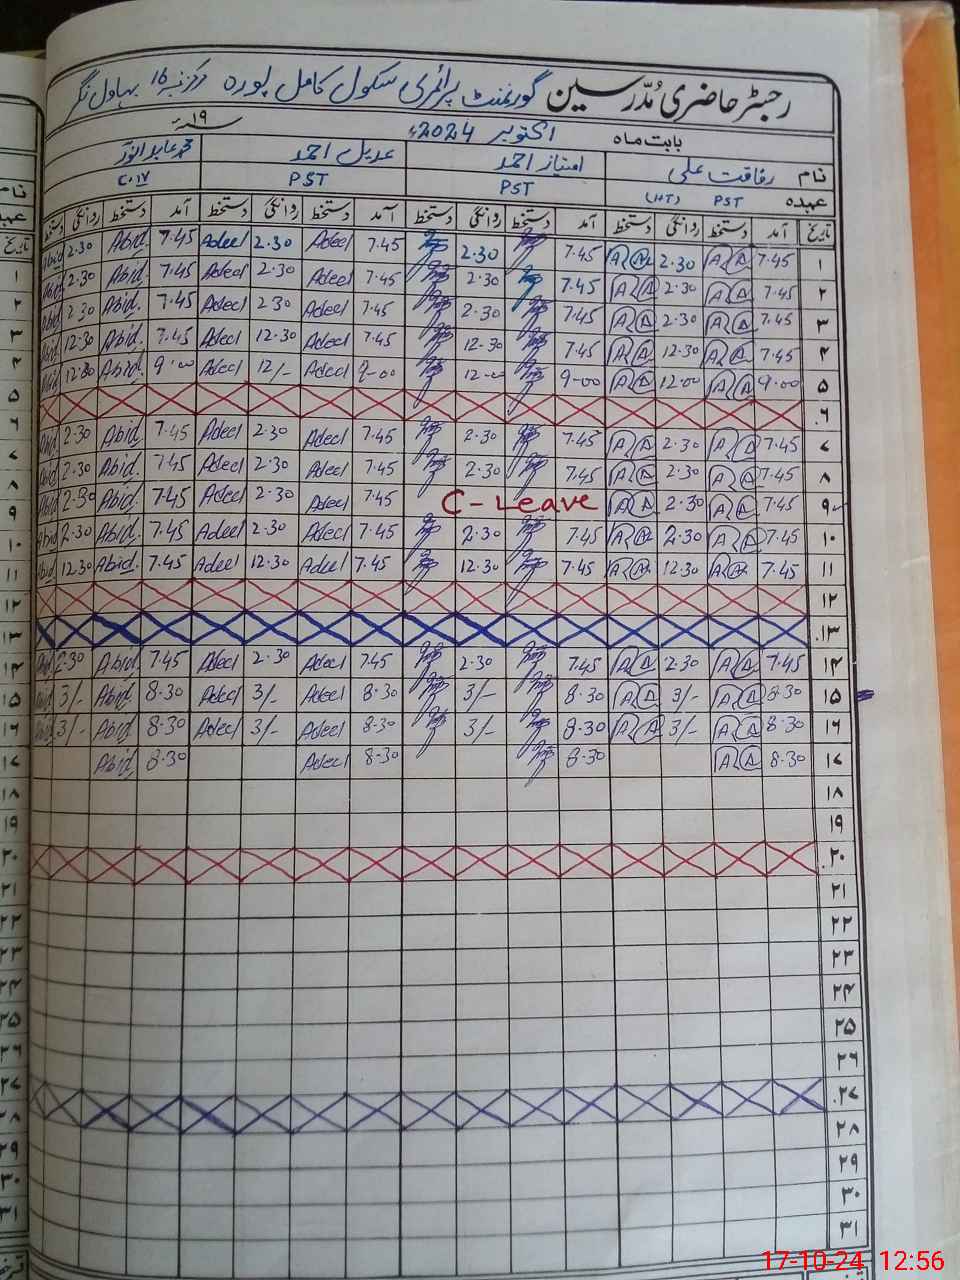 رجسٹر حاضری مدرسین گورنمنٹ پرائمری سکول کامل پورہ مرکز نمبر 16 بہاولنگر
بابت ماہ اکتوبر 2024ء ۱۹ سنہء
نام رفاقت علی امتیاز احمد عدیل احمد محمد عابد انور
عہدہ PST (HT) PST PST C.IV
تاریخ آمد دستخط روانگی دستخط آمد دستخط روانگی دستخط آمد دستخط روانگی دستخط آمد دستخط روانگی دستخط
۱ 7.45 2.30 7.45 2.30 7.45 Adeel 2.30 Adeel 7.45 Abid. 2.30 Abid
۲ 7.45 2.30 7.45 2.30 7.45 Adeel 2.30 Adeel 7.45 Abid. 2.30 Abid
۳ 7.45 2.30 7.45 2.30 7.45 Adeel 2.30 Adeel 7.45 Abid. 2.30 Abid
۴ 7.45 12.30 7.45 12.30 7.45 Adeel 12.30 Adeel 7.45 Abid. 12.30 Abid
۵ 9.00 12.00 9-00 12.00 9-00 Adeel 12/- Adeel 9.00 Abid. 12.30 Abid
۶
۷ 7.45 2.30 7.45 2.30 7.45 Adeel 2.30 Adeel 7.45 Abid. 2.30 Abid
۸ 7.45 2.30 7.45 2.30 7.45 Adeel 2.30 Adeel 7.45 Abid. 2.30 Abid
۹ 7.45 2.30 C-Leave 7.45 Adeel 2.30 Adeel 7.45 Abid. 2.30 Abid
۱۰ 7.45 2.30 7.45 2.30 7.45 Adeel 2.30 Adeel 7.45 Abid. 2.30 Abid
۱۱ 7.45 12.30 7.45 12.30 7.45 Adeel 12.30 Adeel 7.45 Abid. 12.30 Abid
۱۲
۱۳
۱۴ 7.45 2.30 7.45 2.30 7.45 Adeel 2.30 Adeel 7.45 Abid. 2.30 Abid
۱۵ 8.30 3/- 8.30 3/- 8.30 Adeel 3/- Adeel 8.30 Abid. 3/- Abid
۱۶ 8.30 3/- 8.30 3/- 8.30 Adeel 3/- Adeel 8.30 Abid 3/- Abid
۱۷ 8.30 8.30 8-30 Adeel 8.30 Abid
۱۸
۱۹
۲۰
۲۱
۲۲
۲۳
۲۴
۲۵
۲۶
۲۷
۲۸
۲۹
۳۰
۳۱
17-10-24 12:56